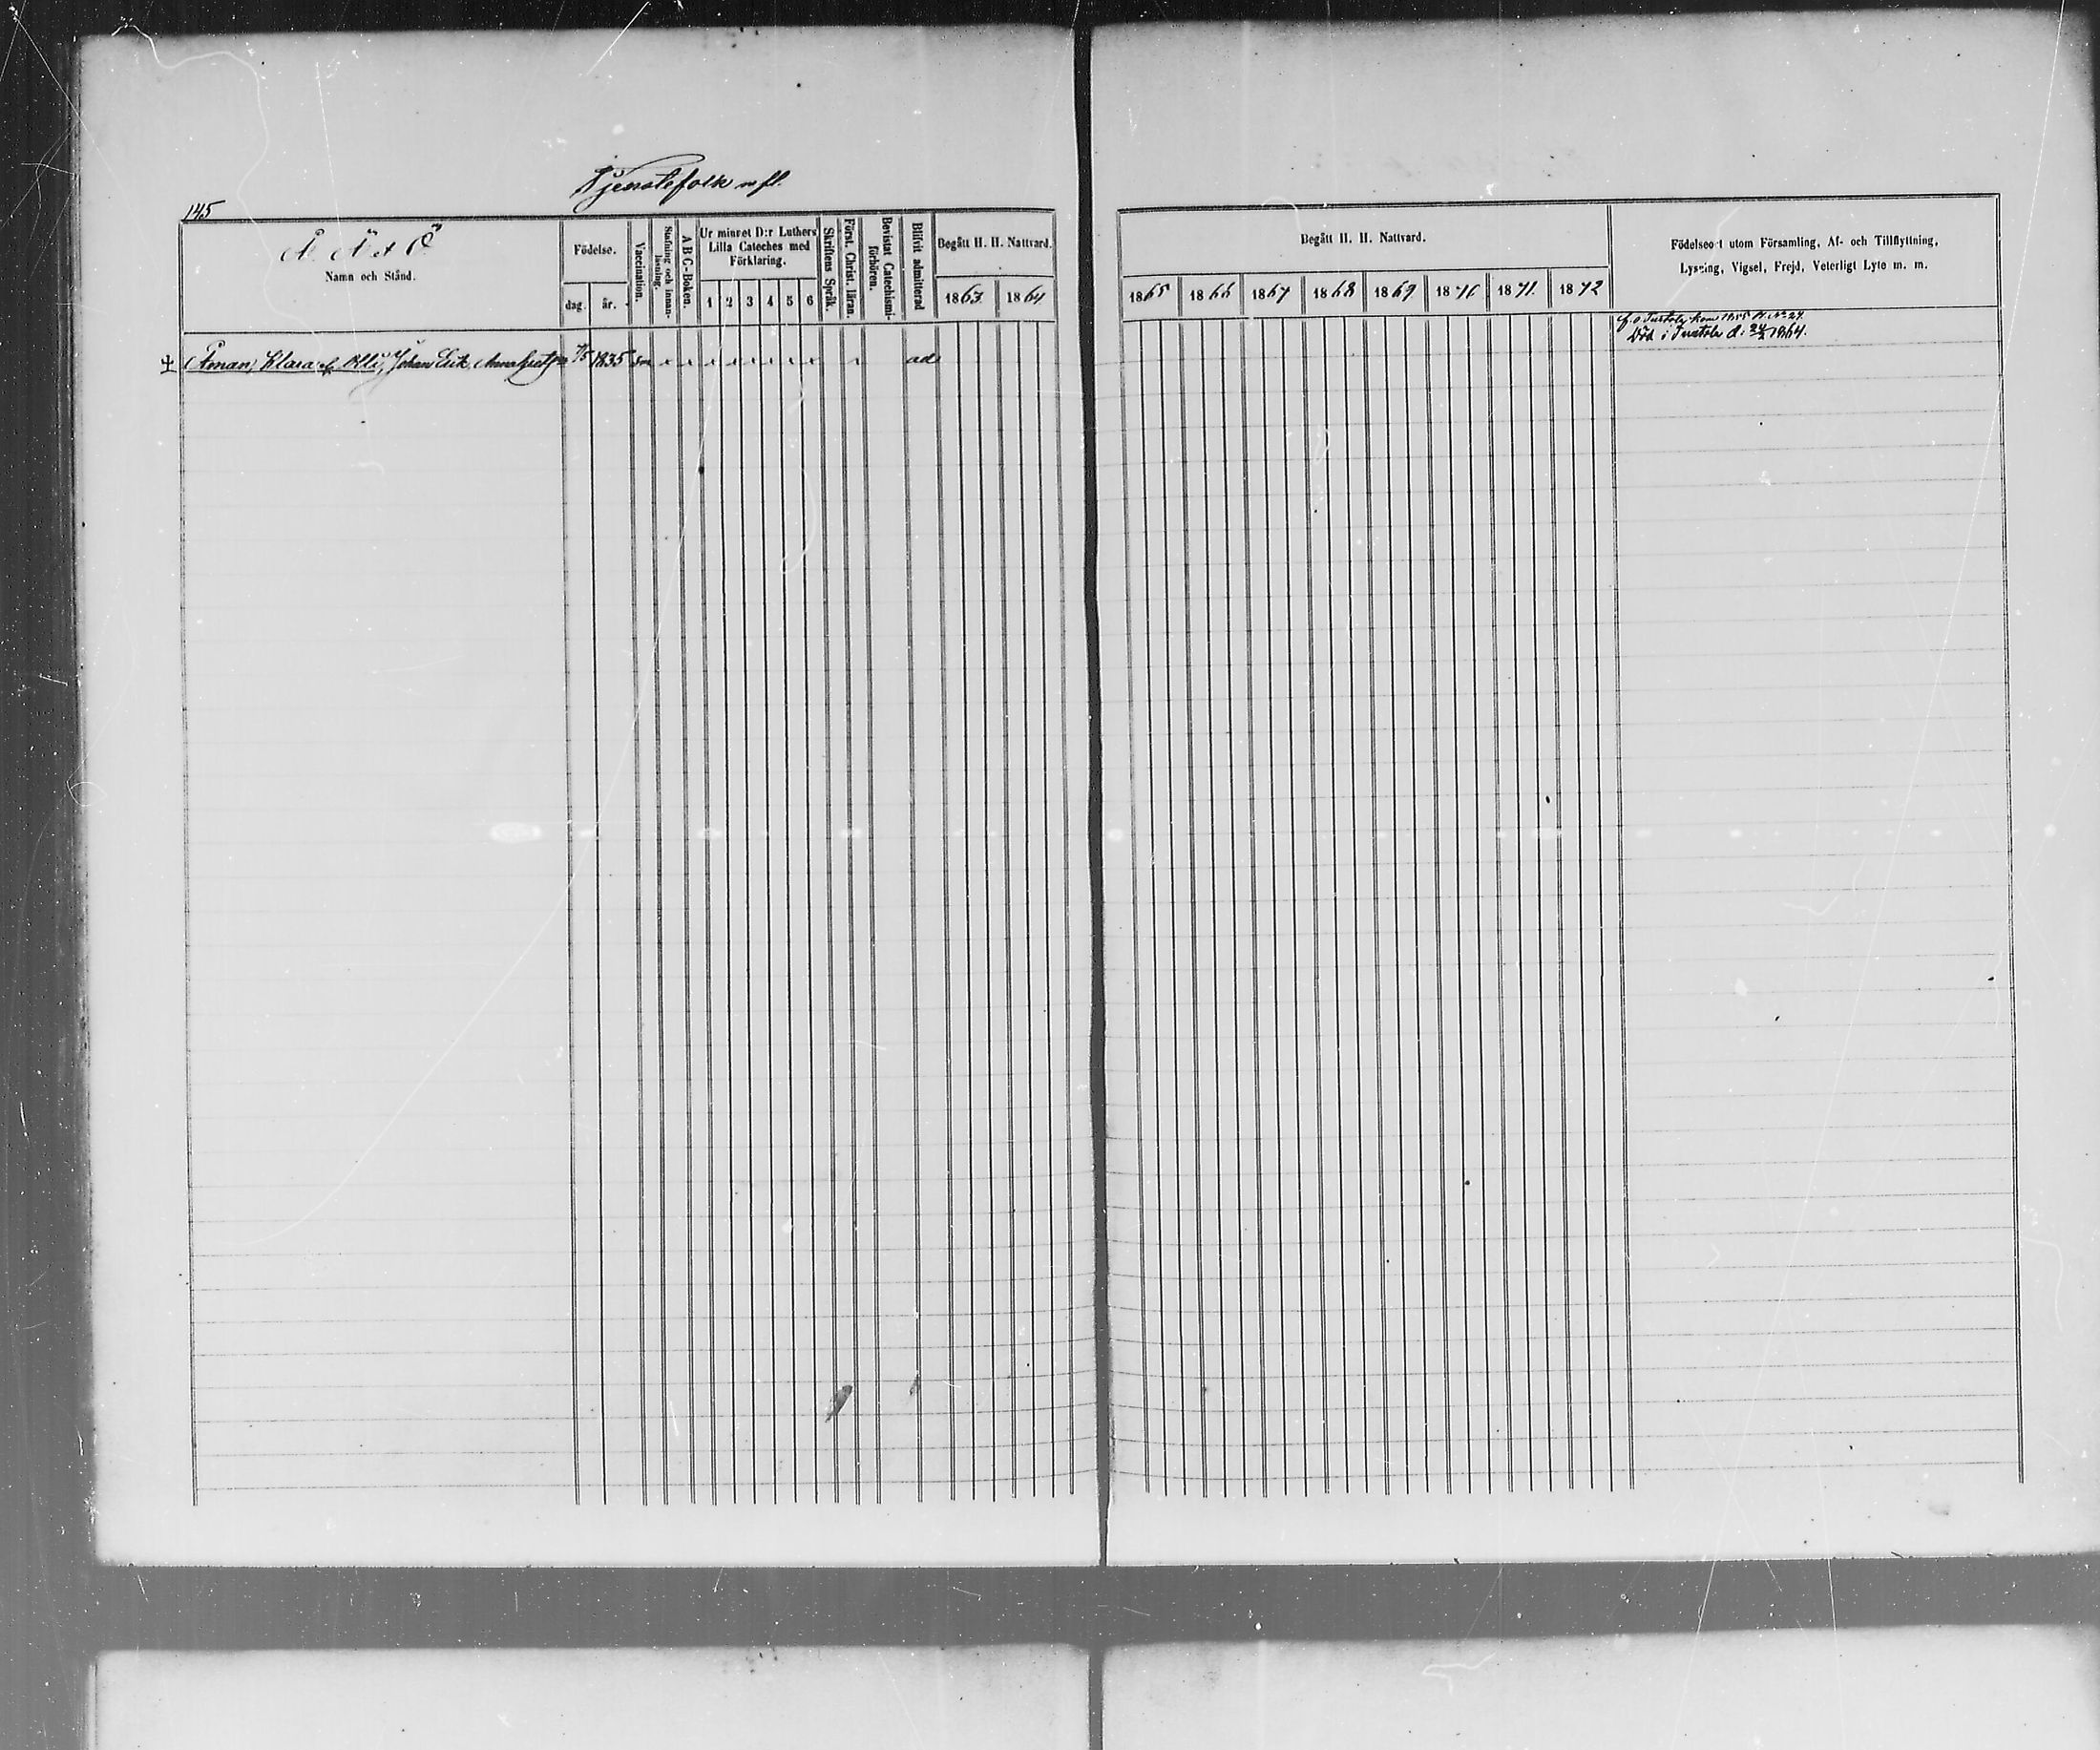 Tjenstefolk m fl.
145
Å Ä et Ö
Namn och Stånd.
Födelse.
dag. år.
Vaccination.
Stafning och innanläsning.
A B C-Boken.
Ur minnet D:r Luthers
Lilla Cateches med
Förklaring.
1 2 3 4 5 6
Skriftens Språk.
Först. Christ. läran.
Bevistat Catechismiförhören.
Blifvit admitterad
Begått H. H. Nattvard.
1863 1864
Åman, Klara Johan Erik 1835 ad
Begått H. H. Nattvard.
1865 1866 1867 1868 1869 1870 1871. 1872
Födelseort utom Församling, Af- och Tillflyttning,
Lysning, Vigsel, Frejd, Veterligt Lyte m. m.
kom 1855 No 24.
Död i d: 1864.